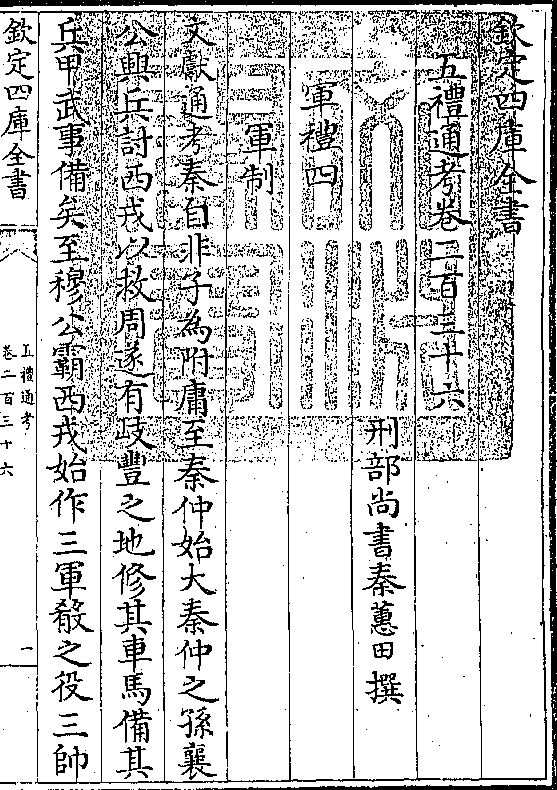 欽定四庫全書
五禮通考卷二百三十六
刑部尚書秦蕙田撰
軍禮四
軍制
文獻通考秦自非子為附庸至秦仲始大秦仲之孫襄
公興兵討西戎以救周遂有岐豐之地修其車馬備其
兵甲武事備矣至穆公霸西戎始作三軍殽之役三帥
欽定四庫全書
五禮通考
卷二百三十六
一